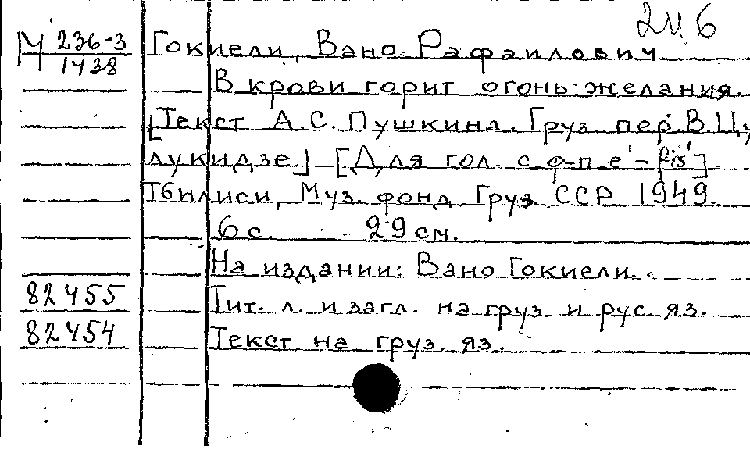 2м6
М 236-3
1438
Гокиели, Вано Рафаилович
В крови горит огонь желания.
[Текст А.С. Пушкина. Груз. пер. В. Ц,
лукидзе] [Для гол. с ф-п. e'-fis²]
Тбилиси, Муз. фонд Груз ССР 1949.
6 с. 29 см.
На издании: Вано Гокиели.
82455
Тит. л. и загл. на груз и рус яз.
82454
Текст на груз. яз.